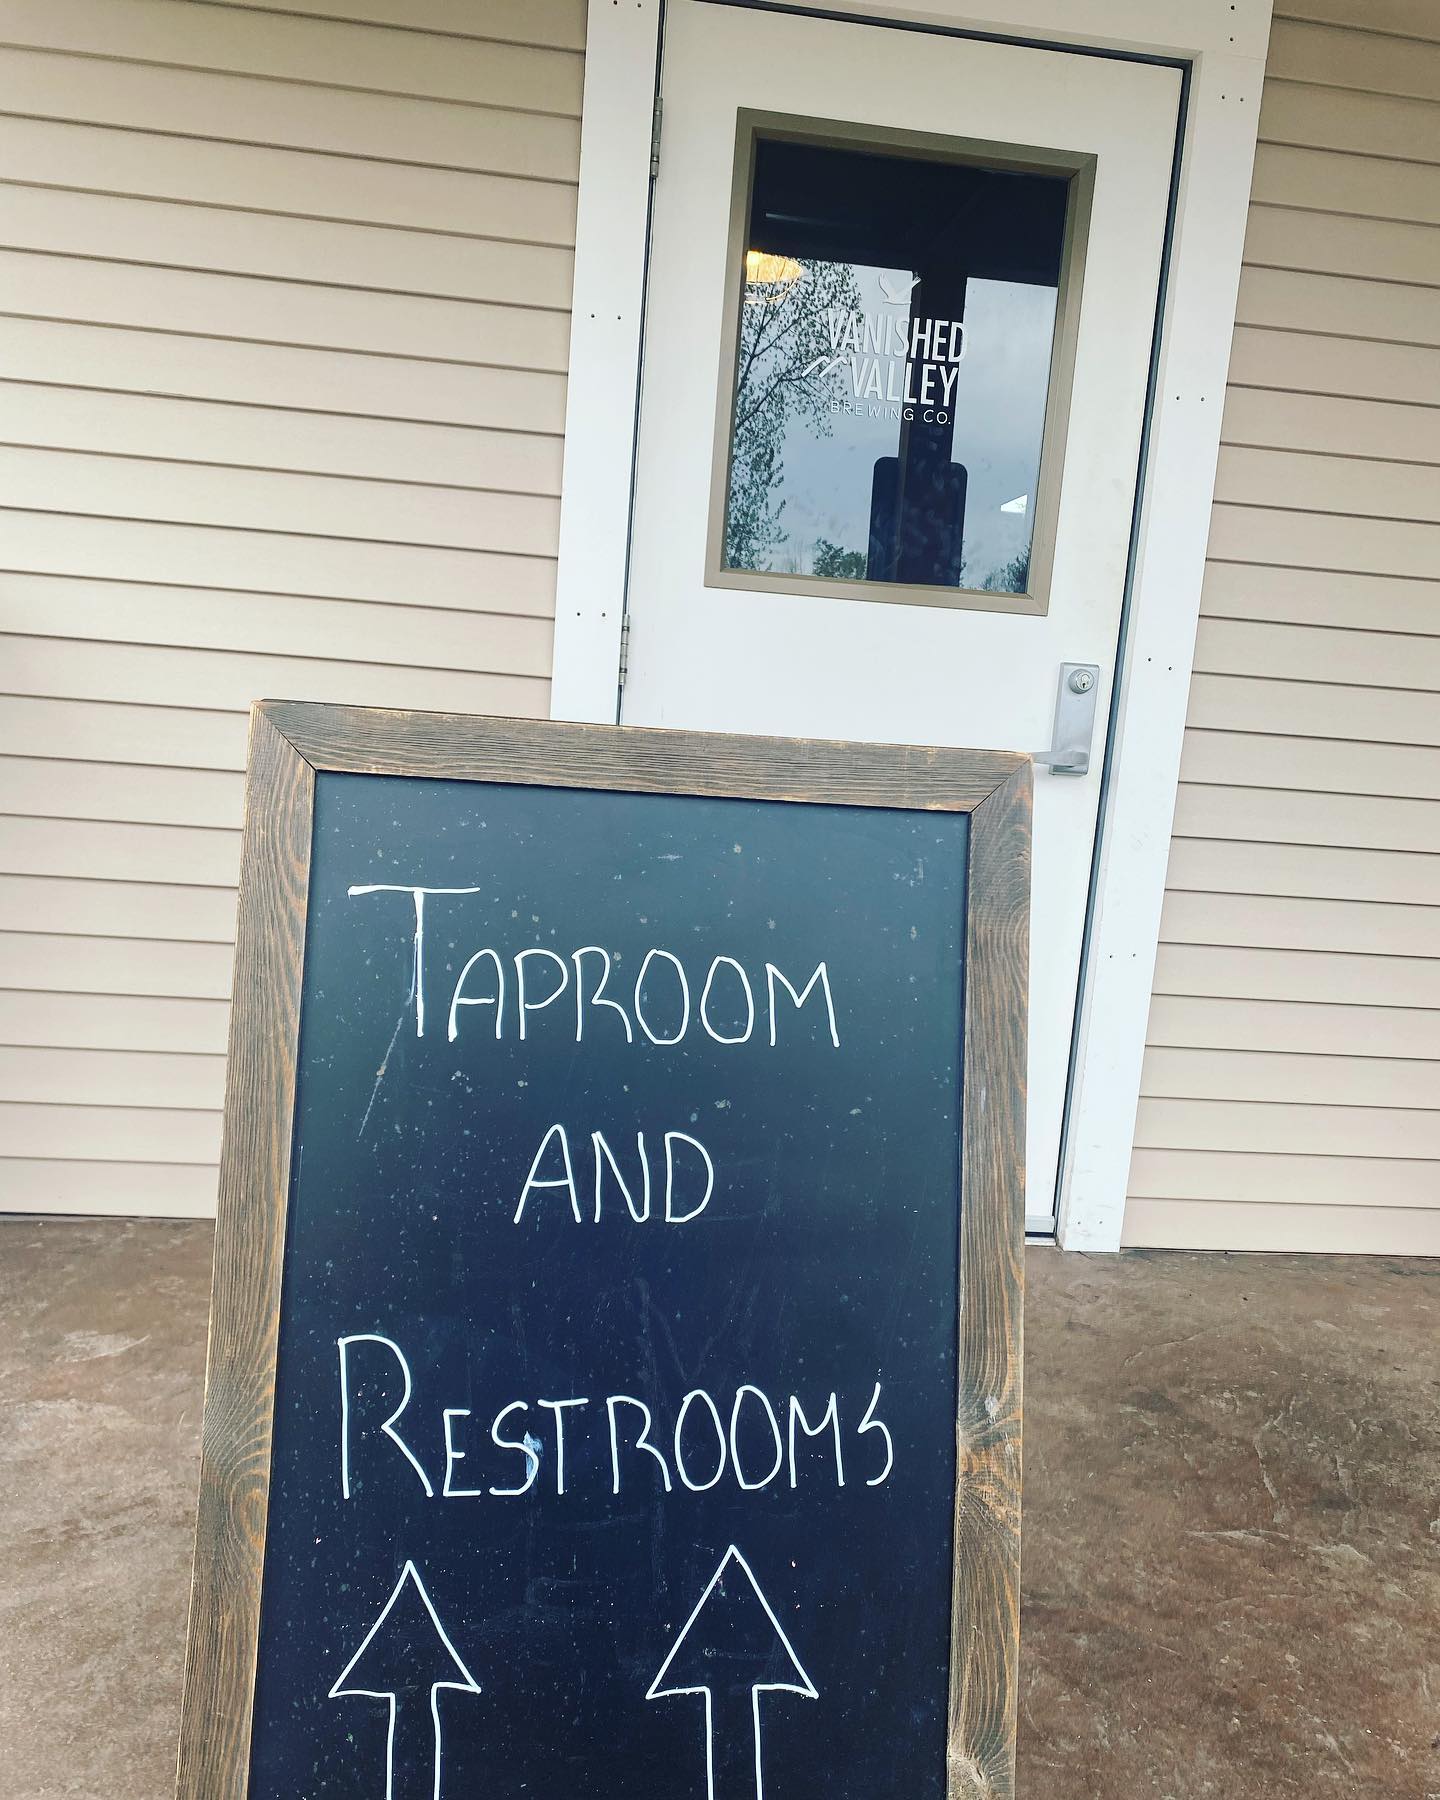 VANISHED
VALLEY
BREWING CO.
TAPROOM
AND
RESTROOMS